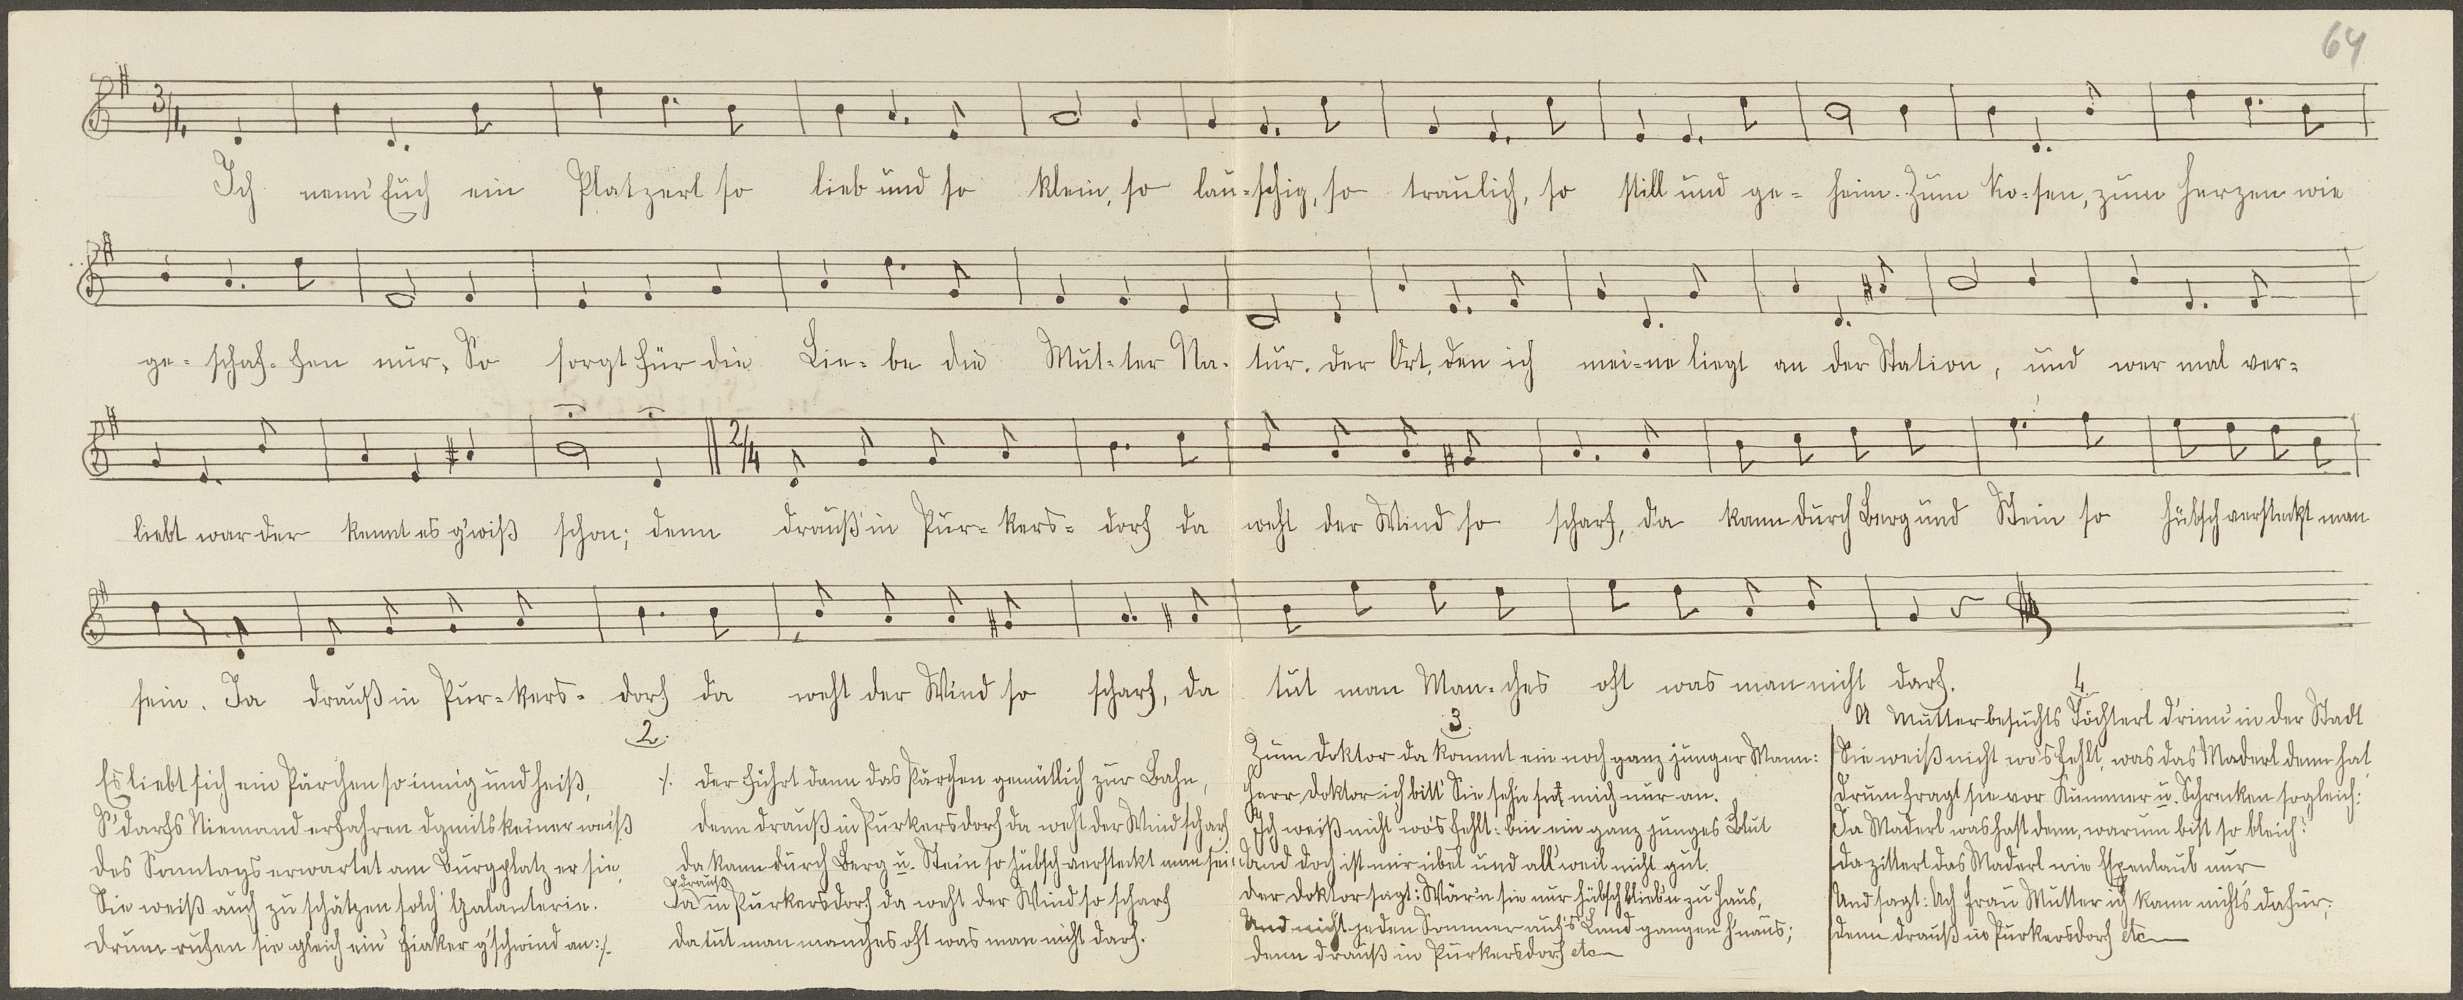 64
3/4
Ich nenn' Euch ein Platzerl so lieb und so klein, so lau-schig, so traulich, so still und ge- heim. Zum Ko-sen, zum Herzen wie
ge- schaf- fen nur, So sorgt für die Lie- be die Mut-ter Na- tur. der Ort, den ich mei-ne liegt an der Station, und wer mal ver-
2/4
liebt war der kennt es g'wiß schon; denn drauß' in Pur- kers- dorf da weht der Wind so scharf, da kann durch Berg und Stein so hübsch versteckt man
sein. Ja drauß in Pur-kers- dorf da weht der Wind so scharf, da tut man Man-ches oft was man nicht darf.
2.
Es liebt sich ein Pärchen so innig und heiß,
S' darfs Niemand erfahren damits keiner weiß
des Sonntags erwartet am Burgplatz er sie,
Sie weiß auch zu schätzen solch' Galanterie.
drum rufen sie gleich ein' Fiaker g'schwind an :/.
:/. der führt dann das Pärchen gemütlich zur Bahn,
denn drauß in Purkersdorf da weht der Wind scharf
da kann durch Berg u. Stein so hübsch versteckt man sein
Ja drauß in Purkersdorf da weht der Wind so scharf
da tut man manches oft was man nicht darf.
3.
Zum Doktor da kommt ein noch ganz junger Mann:
Herr Doktor ich bitt' Sie seh'n mich nur an.
Ich weiß nicht wo's fehlt: bin ein ganz junges Blut
Und doch ist mir übel und all'weil nicht gut.
der Doktor sagt: Wär'n sie nur hübsch blieb'n zu Haus,
Und nicht jeden Sommer auf's Land gangen h'naus;
denn drauß in Purkersdorf etc
4.
A Mutter besuchts Töchterl d'rinn' in der Stadt
Sie weiß nicht wo's fehlt, was das Maderl denn hat,
drum fragt sie vor Kummer u. Schrecken sogleich:
Ja Maderl was hast denn, warum bist so bleich?
da zittert das Maderl wie Espenlaub nur
Und sagt: Ach Frau Mutter ich kann nichts dafür;
denn drauß in Purkersdorf etc